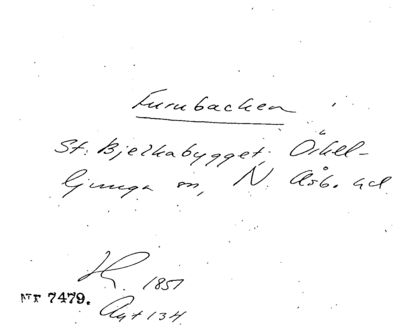 Furubacken
St. Bjelkabygget, Örkel-
ljunga sn, N. Åsb. hd
1851
Nr 7479.
Akt 134